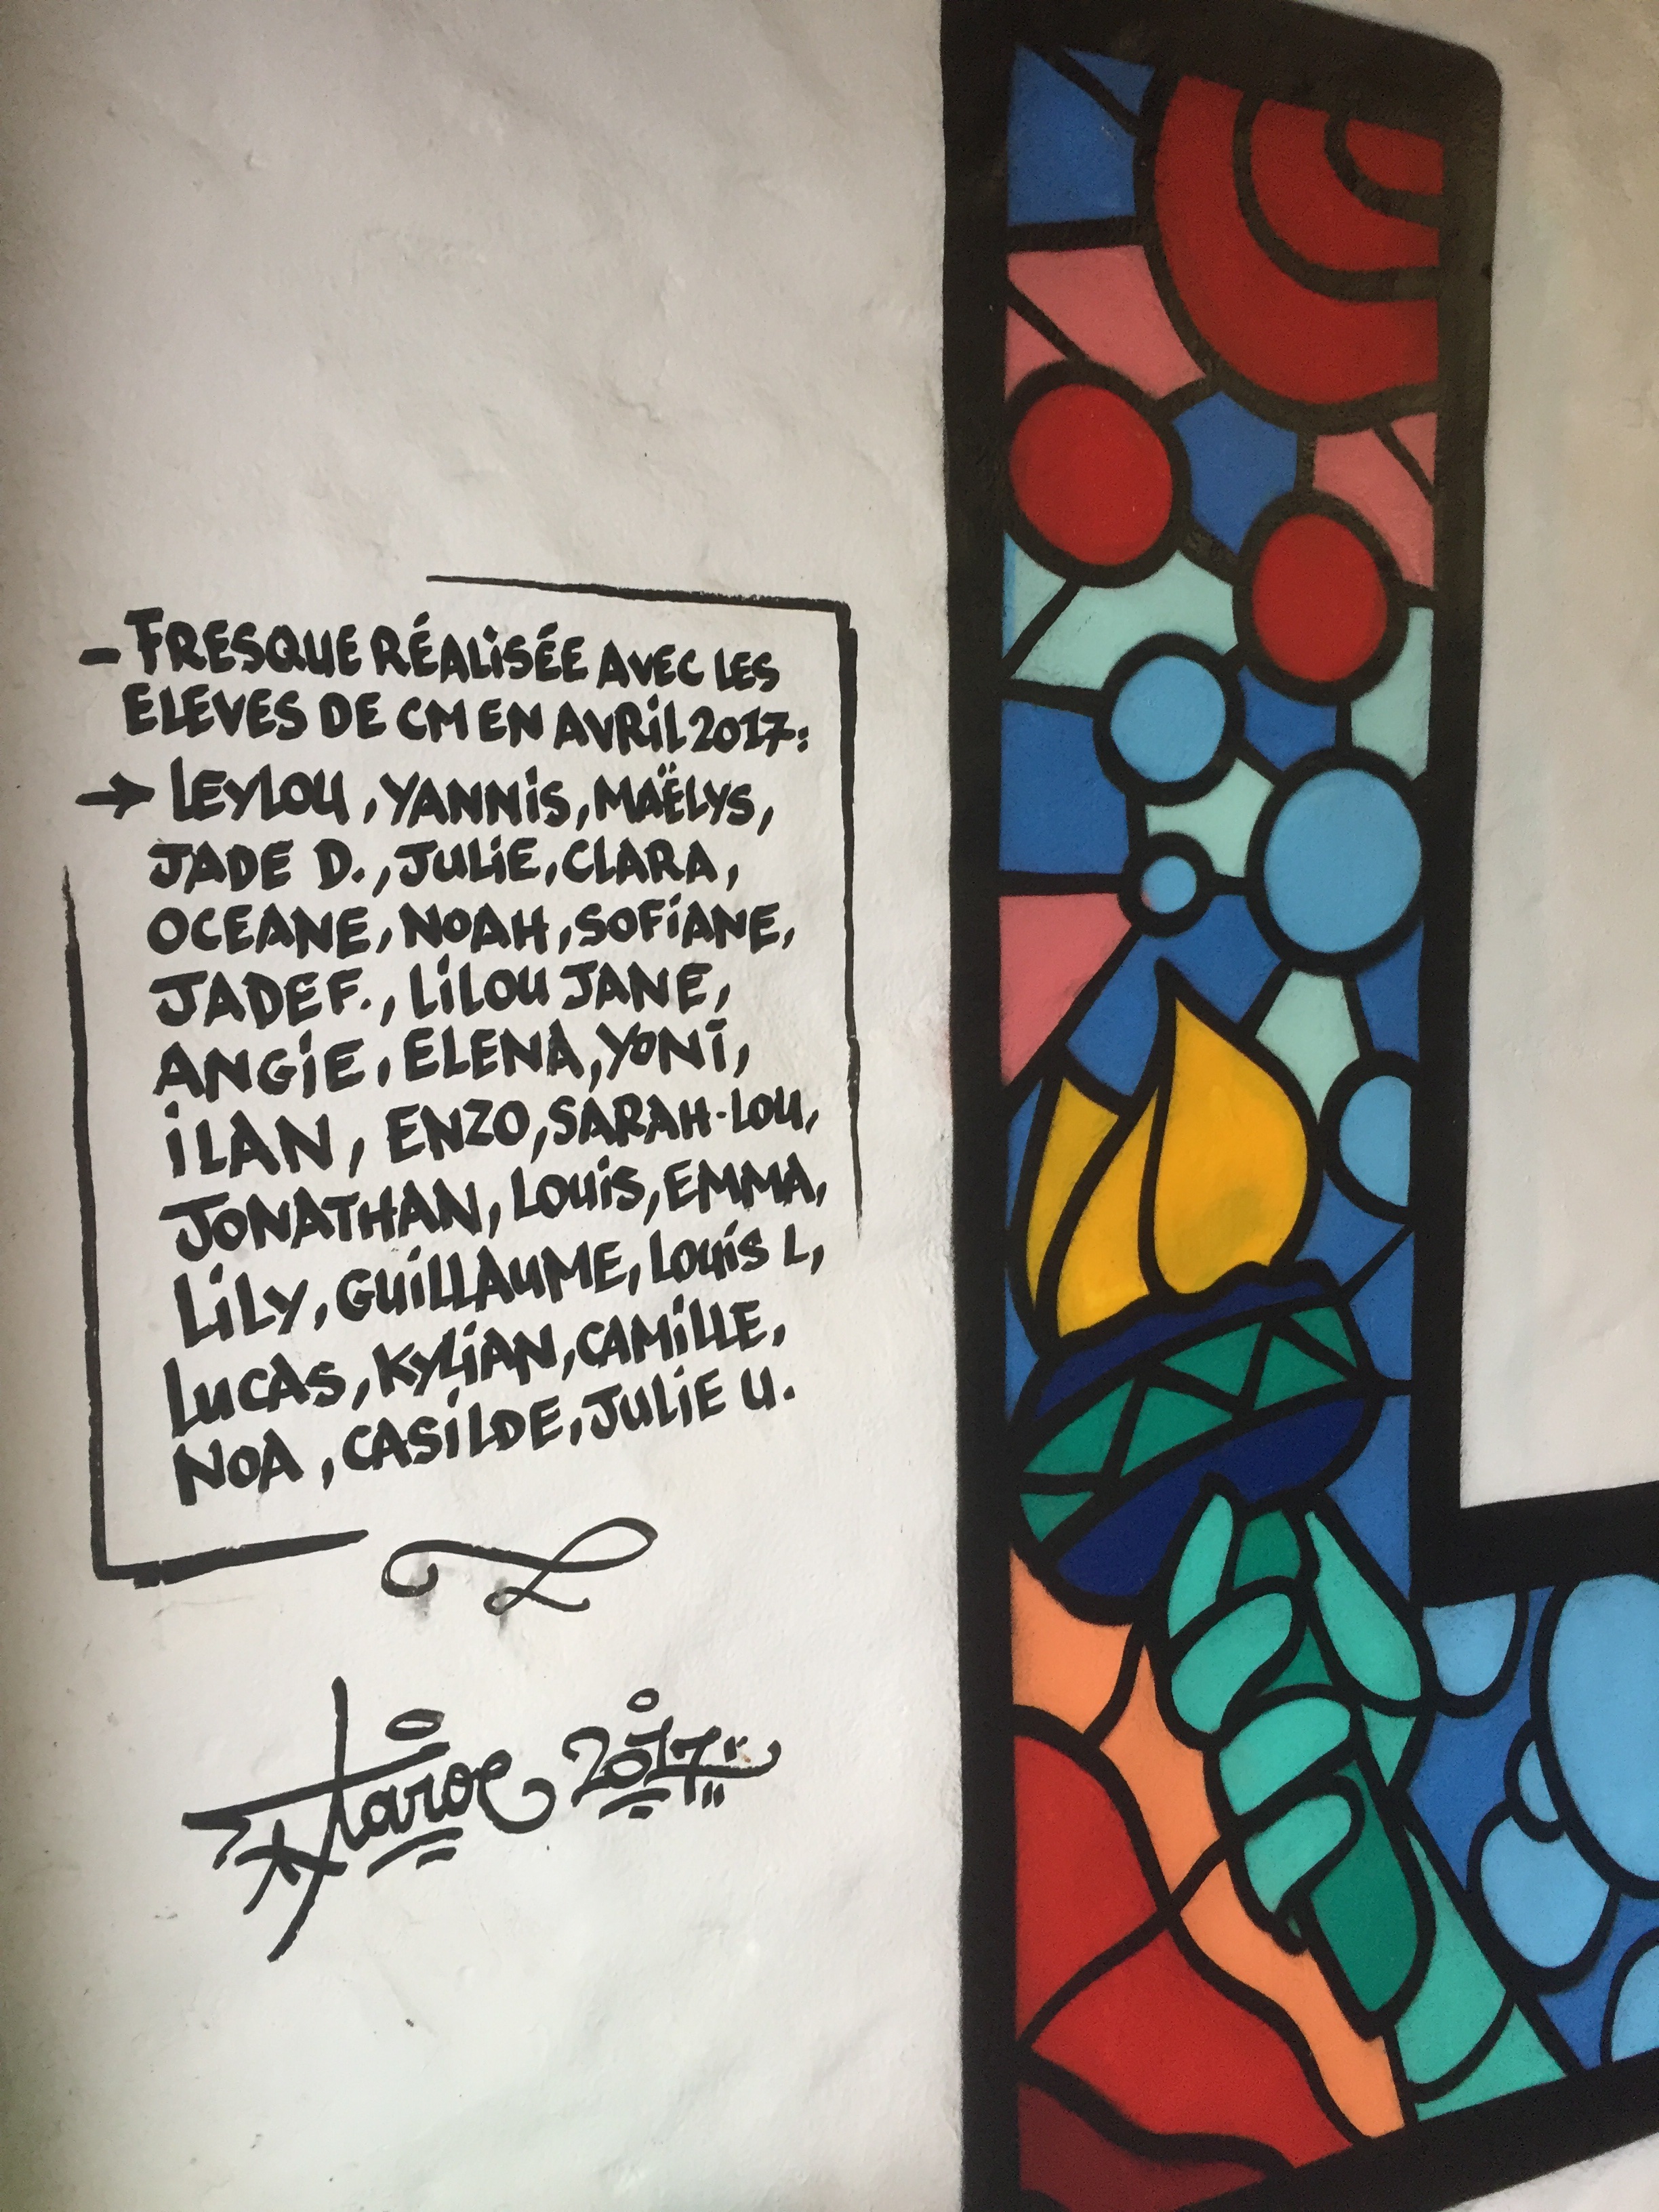 - FRESQUE RÉALISÉE AVEC LES
ELEVES DE CM EN AVRIL 2017:
→ LEYLOU, YANNIS, MAËLYS,
JADE D., JULIE, CLARA,
OCEANE, NOAH, SOFIANE,
JADE F., LILOU JANE,
ANGIE, ELENA, YONI,
ILAN, ENZO, SARAH-LOU,
JONATHAN, LOUIS, EMMA,
LILY, GUILLAUME, LOUIS L,
LUCAS, KYLIAN, CAMILLE,
NOA, CASILDE, JULIE U.
2017